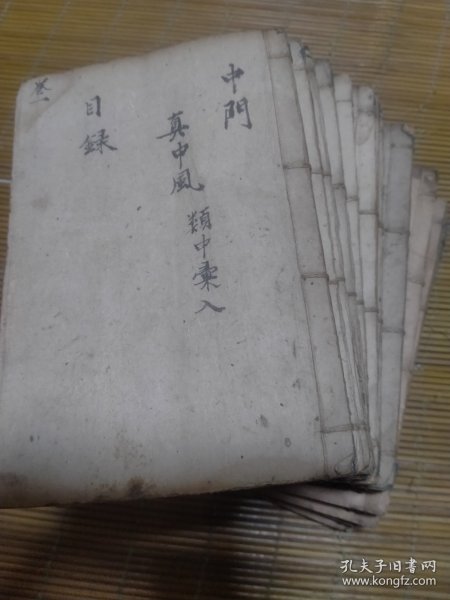 中門
真中風
類中彙入
目録
卷一
孔夫子旧书网
www.kongfz.com